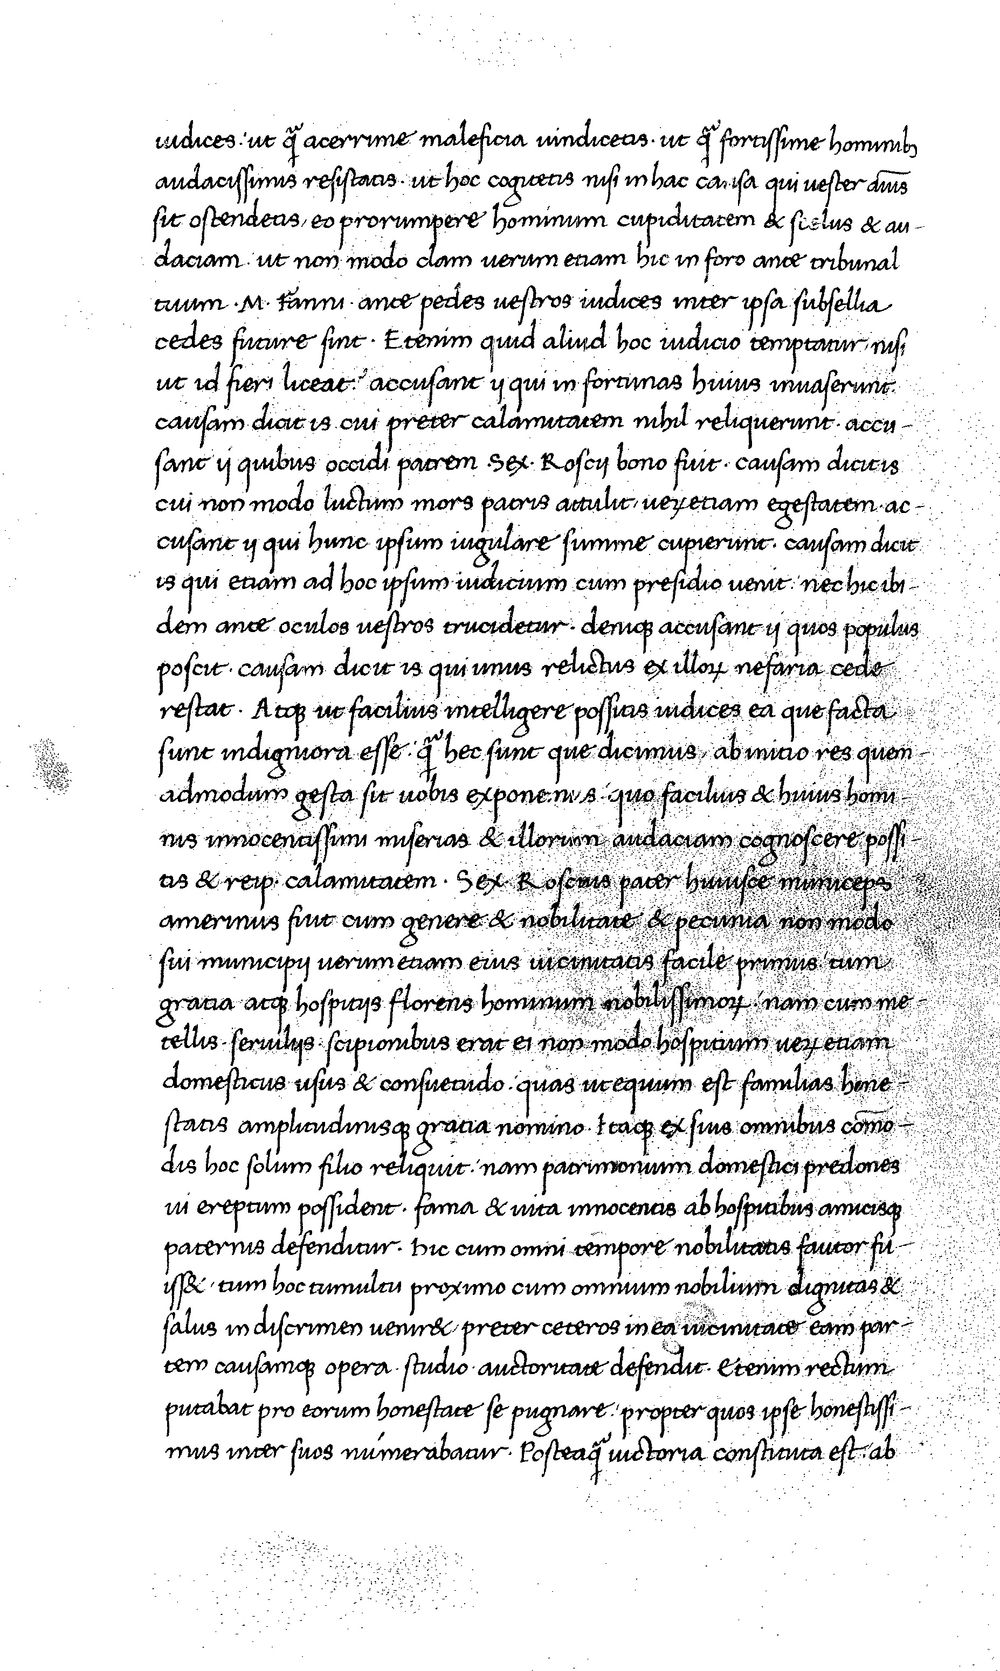 iudices: ut q̃ acerrime maleficia uindicetis · ut q̃ fortissime hominib;
audacissimis resistatis · ut hoc cogitetis nisi in hac causa qui uester aīus
sit ostendetis, eo prorumpere hominum cupiditatem & scelus & au-
daciam · ut non modo clam uerum etiam hic in foro ante tribunal
tuum · M · Fanni · ante pedes uestros iudices inter ipsa subsellia
cedes future sint · Etenim quid aliud hoc iudicio temptatur, nisi
ut id fieri liceat? accusant ij qui in fortunas huius inuaserunt ·
causam dicit is cui preter calamitatem nihil reliquerunt · accu-
sant ij quibus occidi patrem · Sex · Roscij bono fuit · causam dicit is
cui non modo luctum mors patris attulit, ueꝝ etiam egestatem · ac-
cusant ij qui hunc ipsum iugulare summe cupierunt · causam dicit
is qui etiam ad hoc ipsum iudicium cum presidio uenit: nec hic ibi-
dem ante oculos uestros trucidetur · deniqꝫ accusant ij quos populus
poscit · causam dicit is qui unus relictus ex illoꝝ nefaria cede
restat · Atqꝫ ut facilius intelligere possitis iudices ea que facta
sunt indigniora esse · q̃ hec sunt que dicimus, ab initio res quem-
admodum gesta sit uobis exponemus · quo facilius & huius homi-
nis innocentissimi miserias & illorum audaciam cognoscere possi-
tis & reip · calamitatem · Sex · Roscius pater huiusce municeps
amerinus fuit cum genere & nobilitate & pecunia non modo
sui municipij uerum etiam eius uicinitatis facile primus tum
gratia atqꝫ hospitijs florens hominum nobilissimoꝝ · nam cum me-
tellis · seruilijs · scipionibus erat ei non modo hospitium ueꝝ etiam
domesticus usus & consuetudo · quas ut equum est familias hone-
statis amplitudinisqꝫ gratia nomino · Itaqꝫ ex suis omnibus com̄o-
dis hoc solum filio reliquit · nam patrimonium domestici predones
ui ereptum possident · fama & uita innocentis ab hospitibus amicisqꝫ
paternis defenditur · hic cum omni tempore nobilitatis fautor fu-
iss& · tum hoc tumultu proximo cum omnium nobilium dignitas &
salus in discrimen uenir&, preter ceteros in ea uicinitate eam par-
tem causamqꝫ opera · studio · auctoritate defendit · Etenim rectum
putabat pro eorum honestate se pugnare: propter quos ipse honestissi-
mus inter suos numerabatur · Posteaq̃ uictoria constituta est: ab